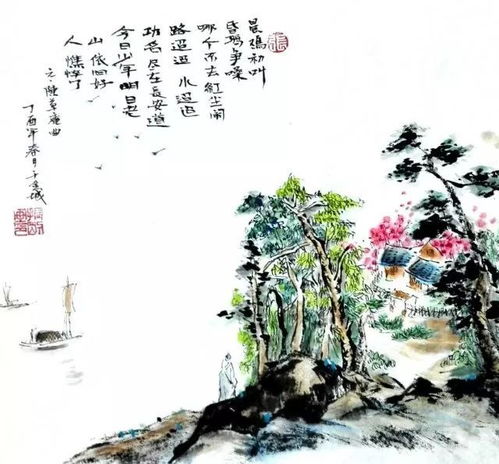 晨鸡初叫
昏鸦争噪
哪个不去红尘闹
路迢迢 水迢迢
功名尽在长安道
今日少年明日老
山依旧好
人憔悴了
元·陈草庵曲
丁酉年春月于金城